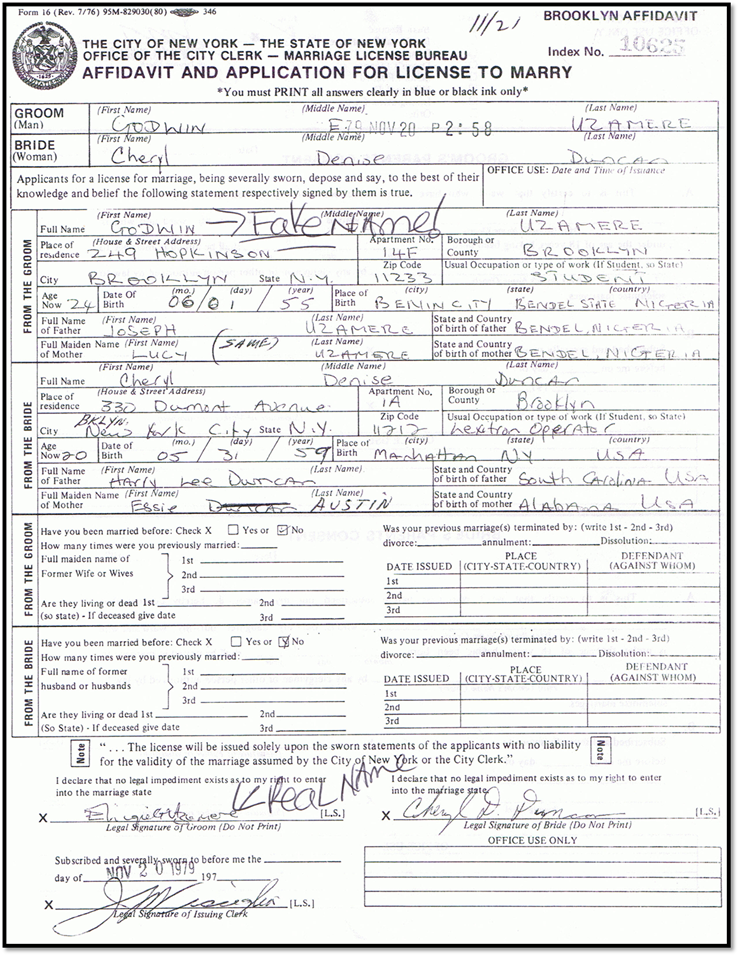 Form 16 (Rev. 7/76) 95M-829030(80) 346
11/21
BROOKLYN AFFIDAVIT
THE CITY OF NEW YORK — THE STATE OF NEW YORK
OFFICE OF THE CITY CLERK — MARRIAGE LICENSE BUREAU
Index No. 10625
AFFIDAVIT AND APPLICATION FOR LICENSE TO MARRY
*You must PRINT all answers clearly in blue or black ink only*
GROOM (Man) (First Name) GODWIN (Middle Name) (Last Name) UZAMERE
E79 NOV 20 P2:58
BRIDE (Woman) (First Name) Cheryl (Middle Name) Denise (Last Name) Duncan
Applicants for a license for marriage, being severally sworn, depose and say, to the best of their
knowledge and belief the following statement respectively signed by them is true.
OFFICE USE: Date and Time of Issuance
FROM THE GROOM
Full Name (First Name) GODWIN → Fake NAME! (Middle Name) (Last Name) UZAMERE
Place of residence (House & Street Address) 249 HOPKINSON Apartment No. 14F Borough or County BROOKLYN
City BROOKLYN State N.Y. Zip Code 11233 Usual Occupation or type of work (If Student, so State) STUDENT
Age Now 24 Date Of Birth (mo.) 06 / (day) 01 / (year) 55 Place of Birth (city) BENIN CITY (state) BENDEL STATE (country) NIGERIA
Full Name of Father (First Name) JOSEPH (Last Name) UZAMERE State and Country of birth of father BENDEL, NIGERIA
Full Maiden Name of Mother (First Name) LUCY (SAME) (Last Name) UZAMERE State and Country of birth of mother BENDEL, NIGERIA
FROM THE BRIDE
Full Name (First Name) Cheryl (Middle Name) Denise (Last Name) Duncan
Place of residence (House & Street Address) 330 Dumont Avenue Apartment No. 1A Borough or County Brooklyn
City BKLYN. New York City State N.Y. Zip Code 11212 Usual Occupation or type of work (If Student, so State) Lexitron Operator
Age Now 20 Date of Birth (mo.) 05 / (day) 31 / (year) 59 Place of Birth (city) Manhattan (state) NY (country) USA
Full Name of Father (First Name) Harry Lee Duncan (Last Name) State and Country of birth of father South Carolina USA
Full Maiden Name of Mother (First Name) Essie Duncan (Last Name) AUSTIN State and Country of birth of mother Alabama USA
FROM THE GROOM
Have you been married before: Check X Yes or No
How many times were you previously married:
Full maiden name of Former Wife or Wives 1st 2nd 3rd
Are they living or dead 1st 2nd
(so state) - If deceased give date 3rd
Was your previous marriage(s) terminated by: (write 1st - 2nd - 3rd)
divorce: annulment: Dissolution:
DATE ISSUED PLACE (CITY-STATE-COUNTRY) DEFENDANT (AGAINST WHOM)
1st
2nd
3rd
FROM THE BRIDE
Have you been married before: Check X Yes or No
How many times were you previously married:
Full name of former husband or husbands 1st 2nd 3rd
Are they living or dead 1st 2nd
(So State) - If deceased give date 3rd
Was your previous marriage(s) terminated by: (write 1st - 2nd - 3rd)
divorce: annulment: Dissolution:
DATE ISSUED PLACE (CITY-STATE-COUNTRY) DEFENDANT (AGAINST WHOM)
1st
2nd
3rd
Note
". . . The license will be issued solely upon the sworn statements of the applicants with no liability
for the validity of the marriage assumed by the City of New York or the City Clerk."
Note
I declare that no legal impediment exists as to my right to enter
into the marriage state
Real NAME
X [L.S.]
Legal Signature of Groom (Do Not Print)
I declare that no legal impediment exists as to my right to enter
into the marriage state
X Cheryl D. Duncan [L.S.]
Legal Signature of Bride (Do Not Print)
Subscribed and severally sworn to before me the
day of NOV 20 1979 197
X [L.S.]
Legal Signature of Issuing Clerk
OFFICE USE ONLY